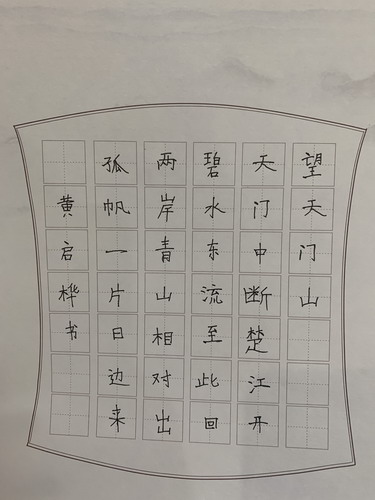 望天门山
天门中断楚江开
碧水东流至此回
两岸青山相对出
孤帆一片日边来
黄启桦书